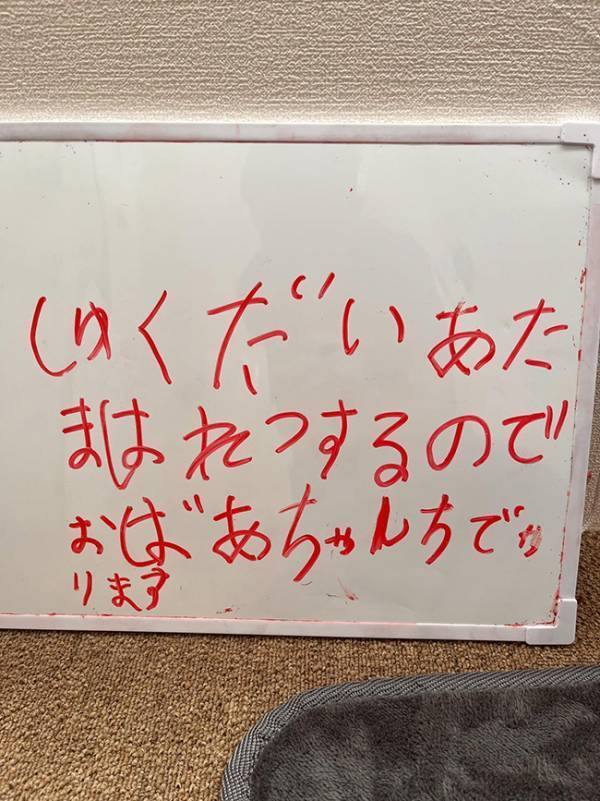 しゅくだいあた
まはれつするので
おばあちゃんちでや
ります